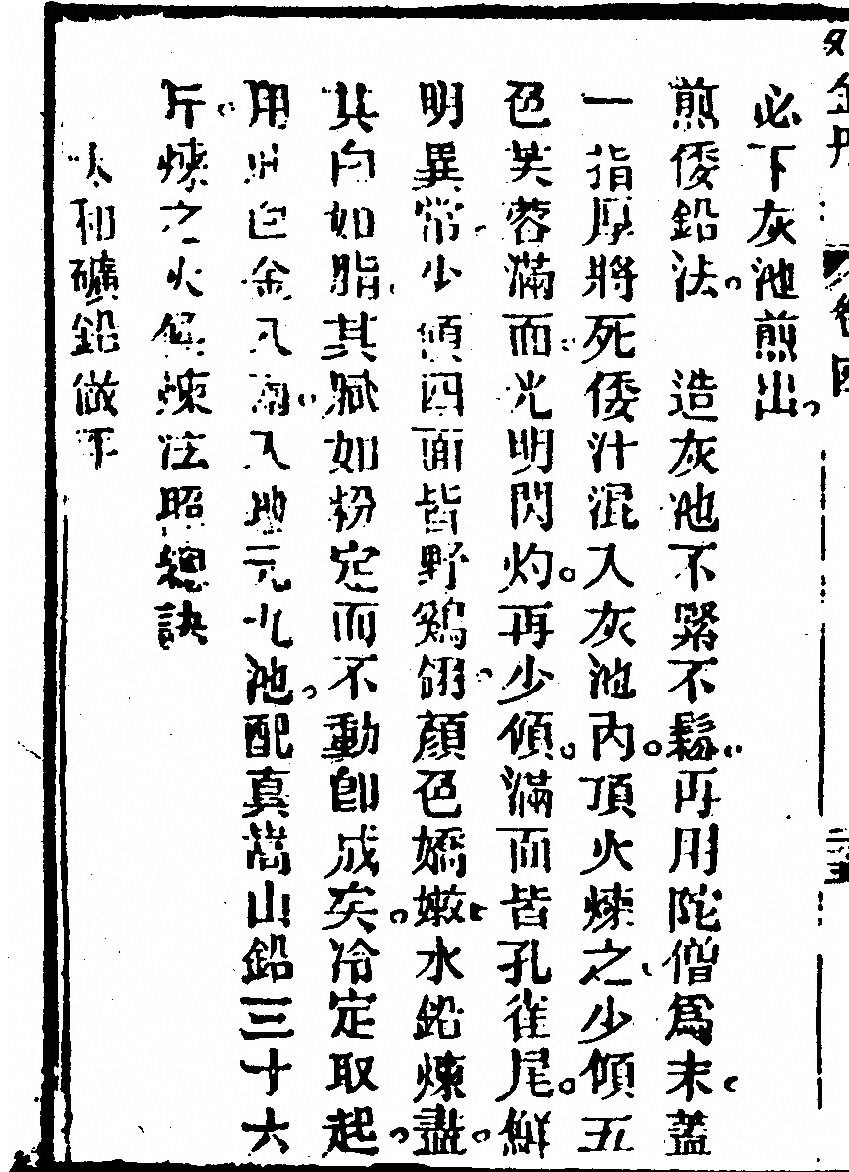 金丹　卷四
必下灰池煎出。
煎倭鉛法。　造灰池不緊不鬆。再用陀僧爲末。蓋
一指厚將死倭汁混入灰池内。頂火煉之。少傾五
色芙蓉滿面。光明閃灼。再少傾。滿面皆孔雀尾。鮮
明異常。少傾四面皆野鷄翎。顏色嬌嫩。水鉛煉盡。
其白如脂。其膩如粉定而不動卽成矣。冷定取起。
用 白金八兩。入地元九池。配真嵩山鉛三十六
斤。煉之火候煉法照總訣
太和礦鉛做手